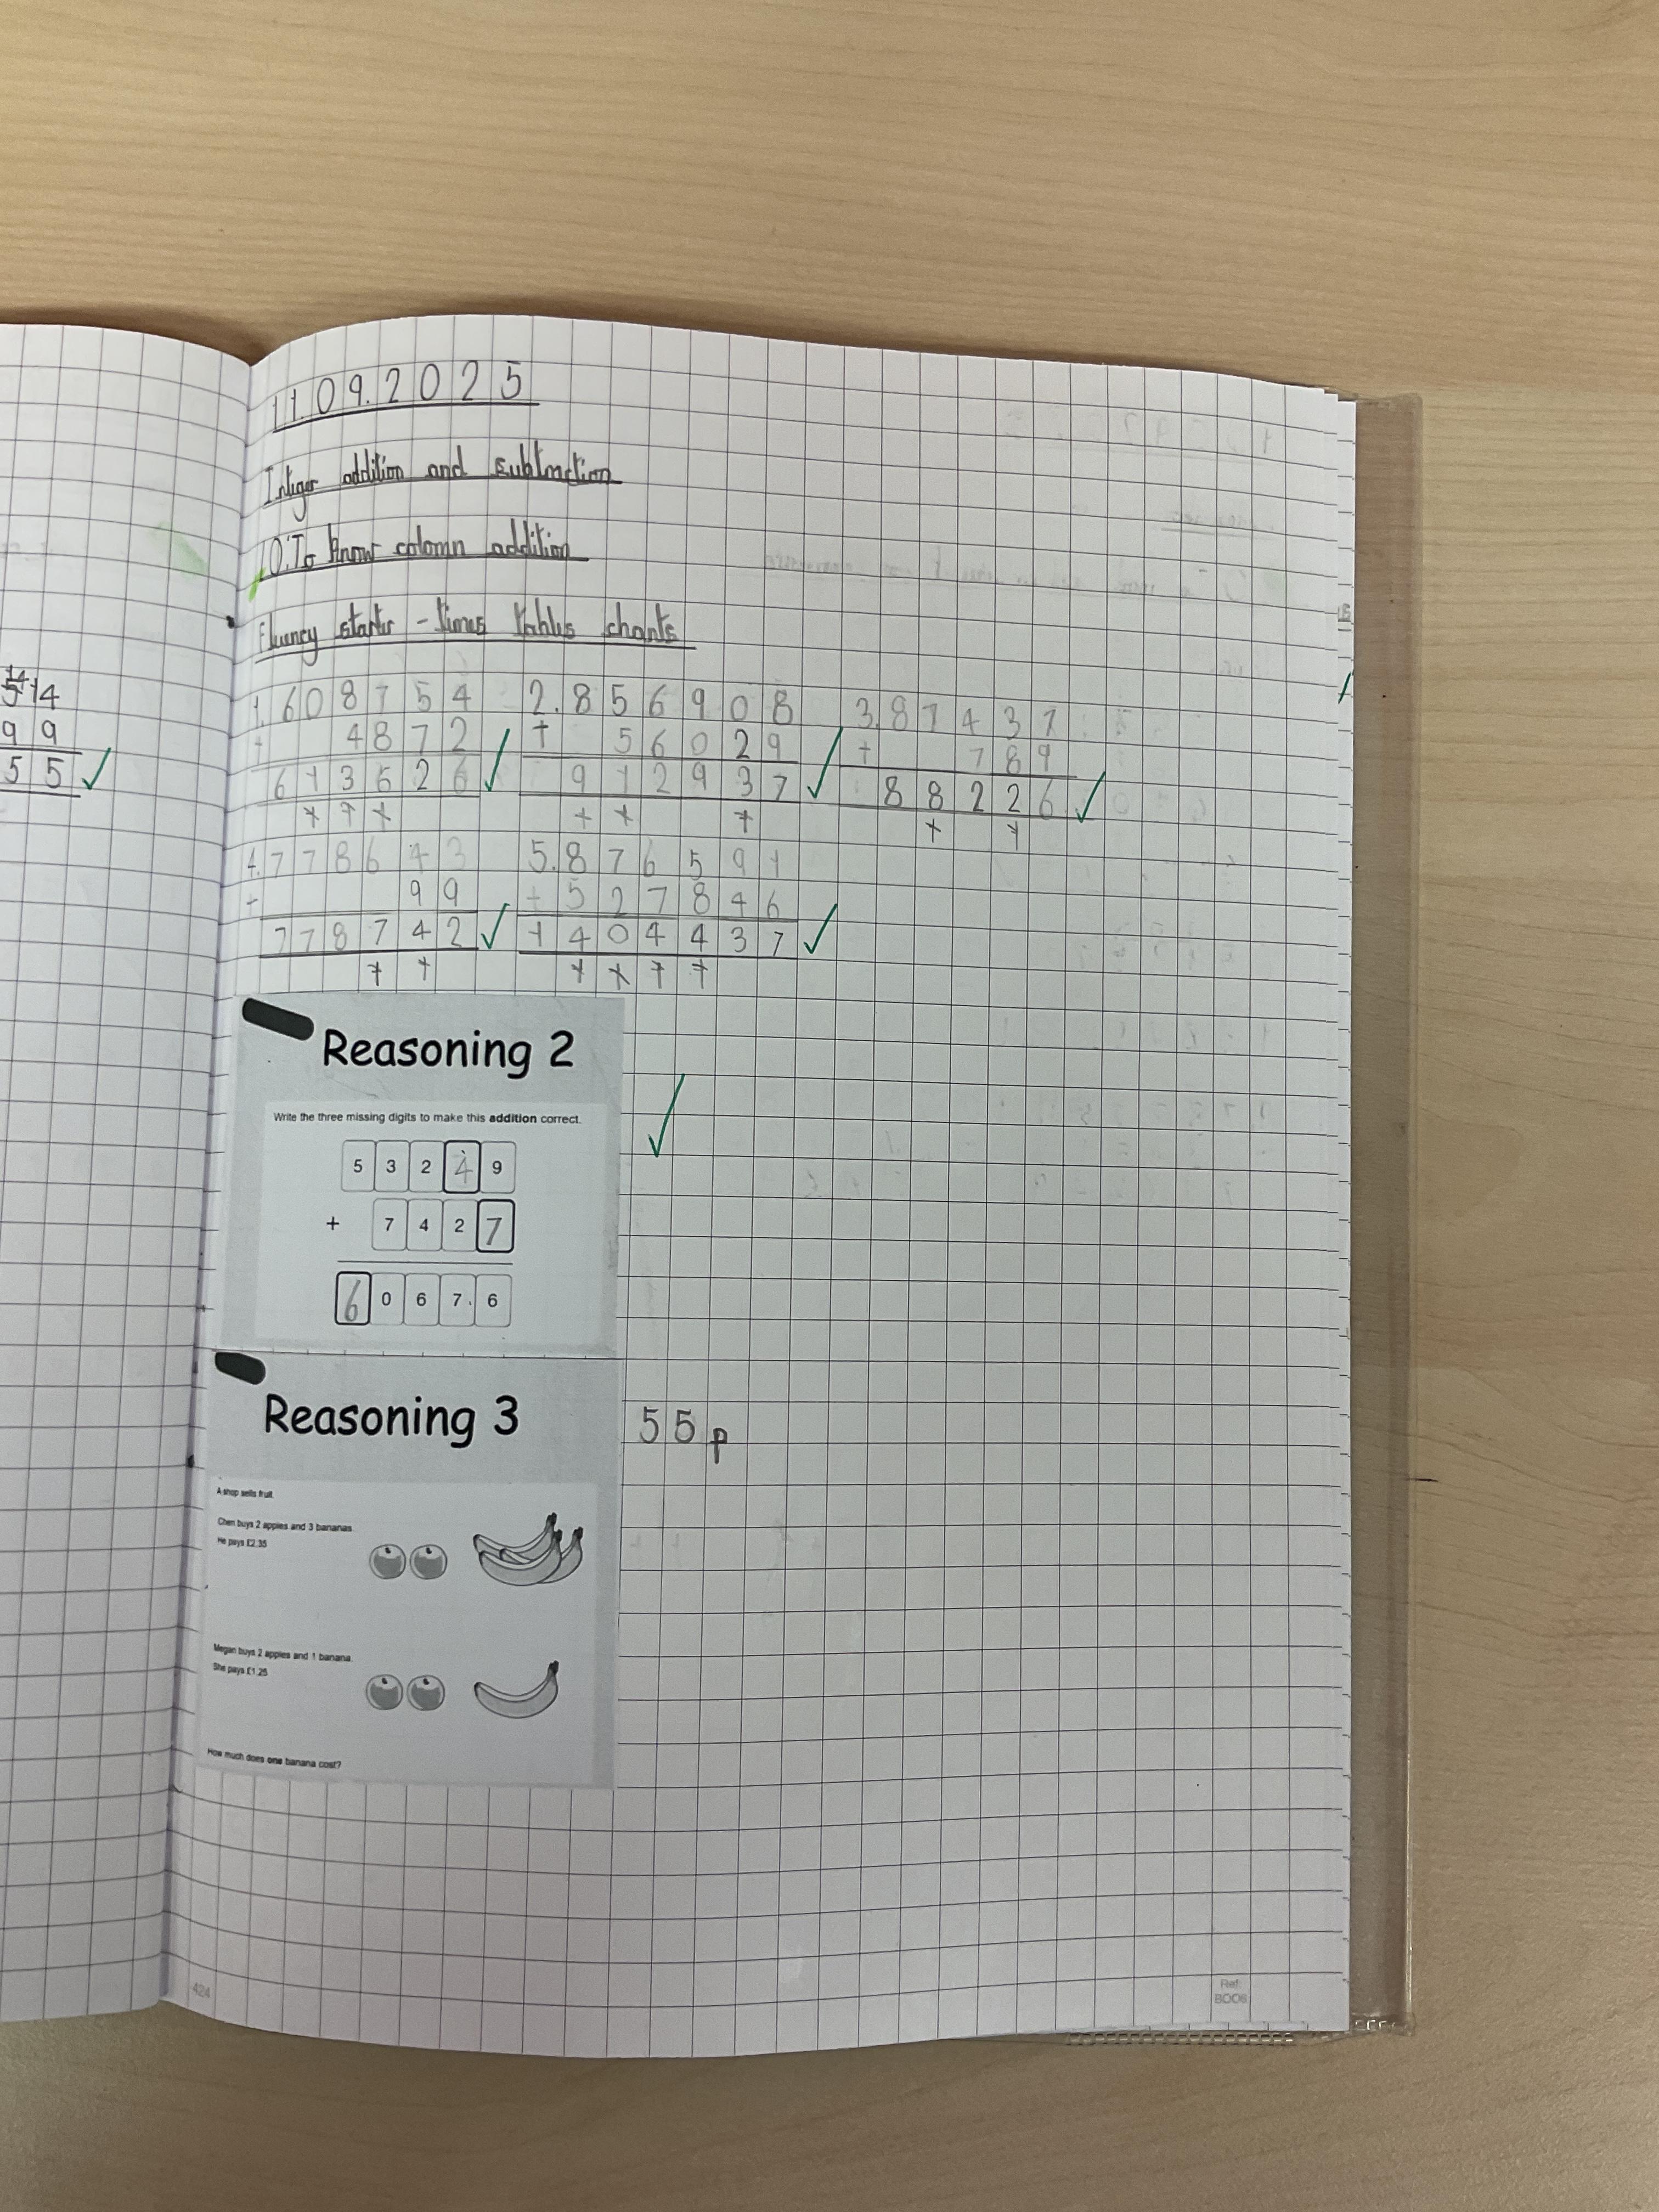 11.09.2025
Integer addition and subtraction
LO: To know colomn addition
Fluency starter - times tables charts
1. 608754 2. 856908 3. 87437
+ 4872 + 56029 + 789
613626 912937 88226
1 1 1 1 1 1 1 1
4. 778643 5. 876591
+ 99 + 527846
778742 1404437
1 1 1 1 1 1
Reasoning 2
Write the three missing digits to make this addition correct.
5 3 2 4 9
+ 7 4 2 7
6 0 6 7 6
Reasoning 3
55p
A shop sells fruit.
Chen buys 2 apples and 3 bananas.
He pays £2.35
Megan buys 2 apples and 1 banana.
She pays £1.25
How much does one banana cost?
14
99
55
424
Ref:
BOO6